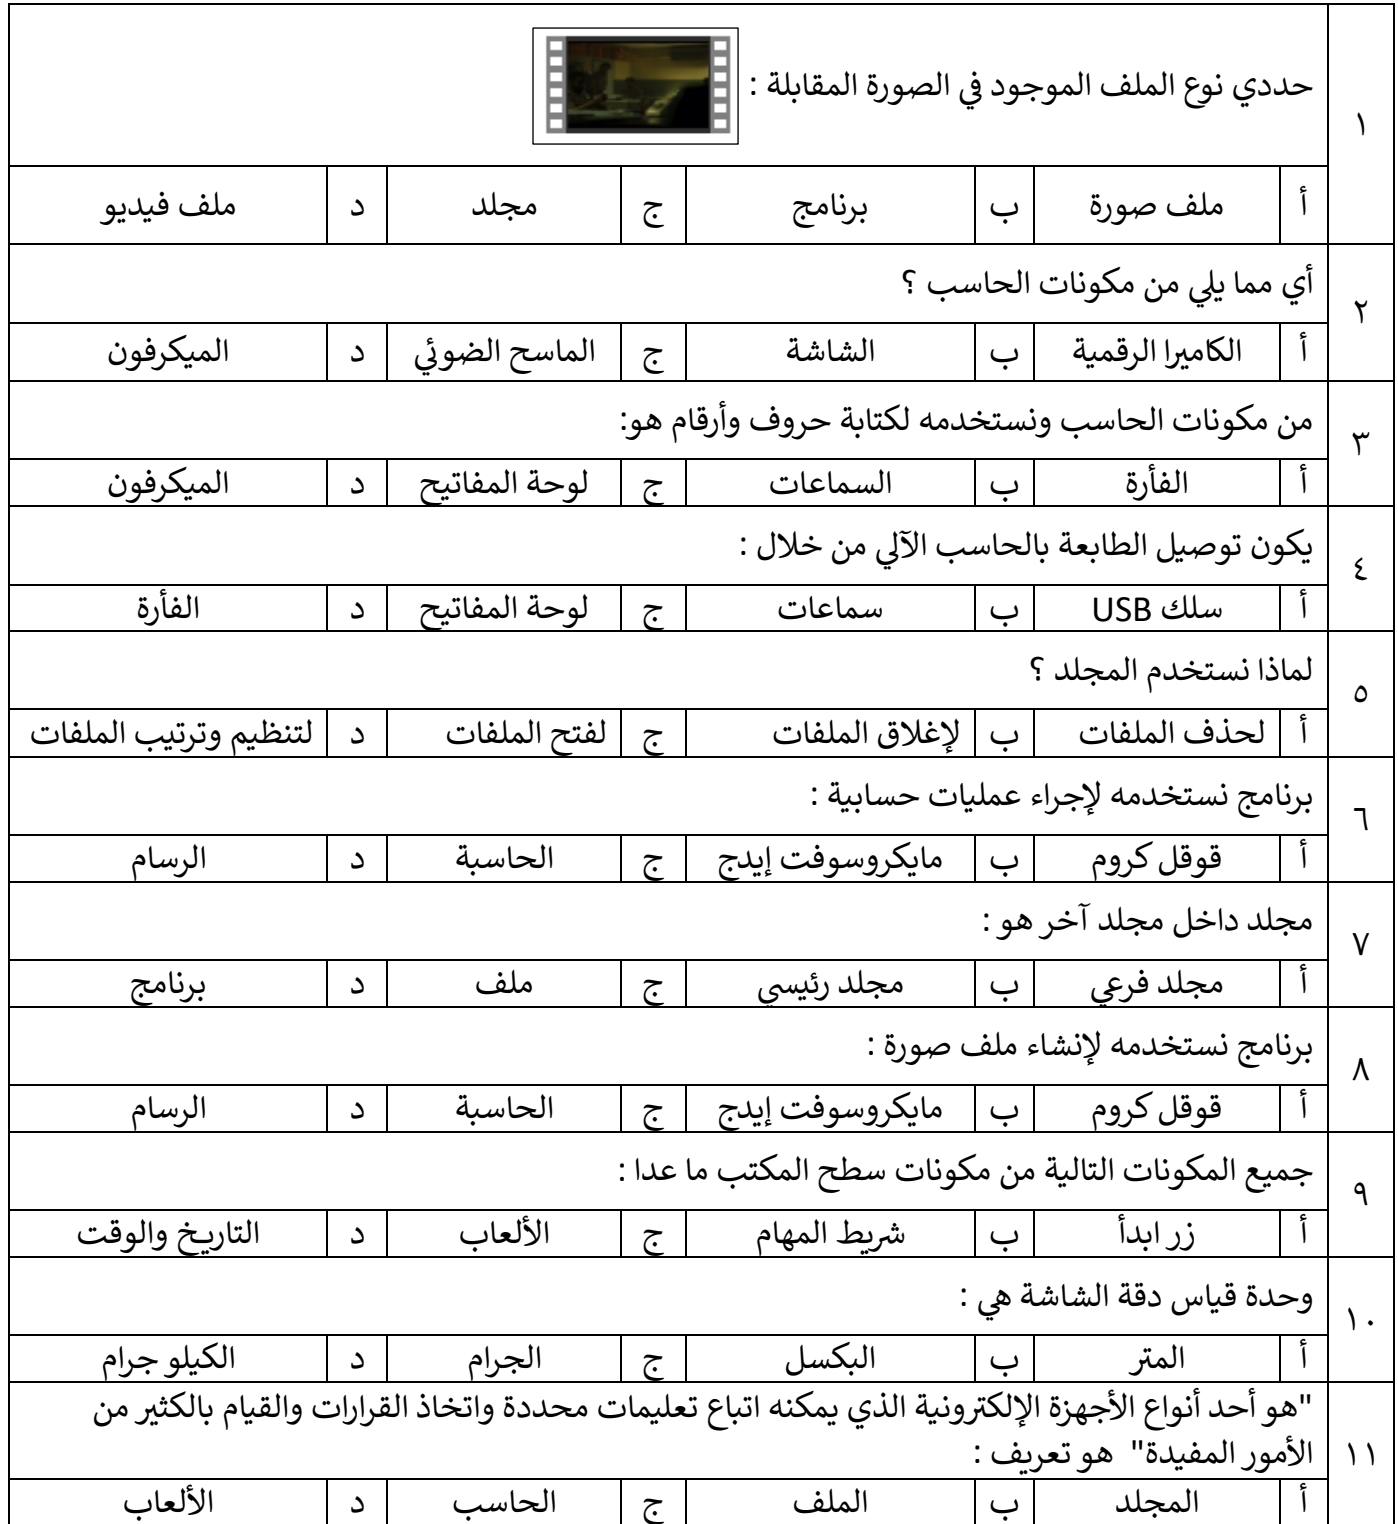 ١ حددي نوع الملف الموجود في الصورة المقابلة :
أ ملف صورة ب برنامج ج مجلد د ملف فيديو
٢ أي مما يلي من مكونات الحاسب ؟
أ الكاميرا الرقمية ب الشاشة ج الماسح الضوئي د الميكرفون
٣ من مكونات الحاسب ونستخدمه لكتابة حروف وأرقام هو:
أ الفأرة ب السماعات ج لوحة المفاتيح د الميكرفون
٤ يكون توصيل الطابعة بالحاسب الآلي من خلال :
أ سلك USB ب سماعات ج لوحة المفاتيح د الفأرة
٥ لماذا نستخدم المجلد ؟
أ لحذف الملفات ب لإغلاق الملفات ج لفتح الملفات د لتنظيم وترتيب الملفات
٦ برنامج نستخدمه لإجراء عمليات حسابية :
أ قوقل كروم ب مايكروسوفت إيدج ج الحاسبة د الرسام
٧ مجلد داخل مجلد آخر هو :
أ مجلد فرعي ب مجلد رئيسي ج ملف د برنامج
٨ برنامج نستخدمه لإنشاء ملف صورة :
أ قوقل كروم ب مايكروسوفت إيدج ج الحاسبة د الرسام
٩ جميع المكونات التالية من مكونات سطح المكتب ما عدا :
أ زر ابدأ ب شريط المهام ج الألعاب د التاريخ والوقت
١٠ وحدة قياس دقة الشاشة هي :
أ المتر ب البكسل ج الجرام د الكيلو جرام
١١ "هو أحد أنواع الأجهزة الإلكترونية الذي يمكنه اتباع تعليمات محددة واتخاذ القرارات والقيام بالكثير من
الأمور المفيدة" هو تعريف :
أ المجلد ب الملف ج الحاسب د الألعاب